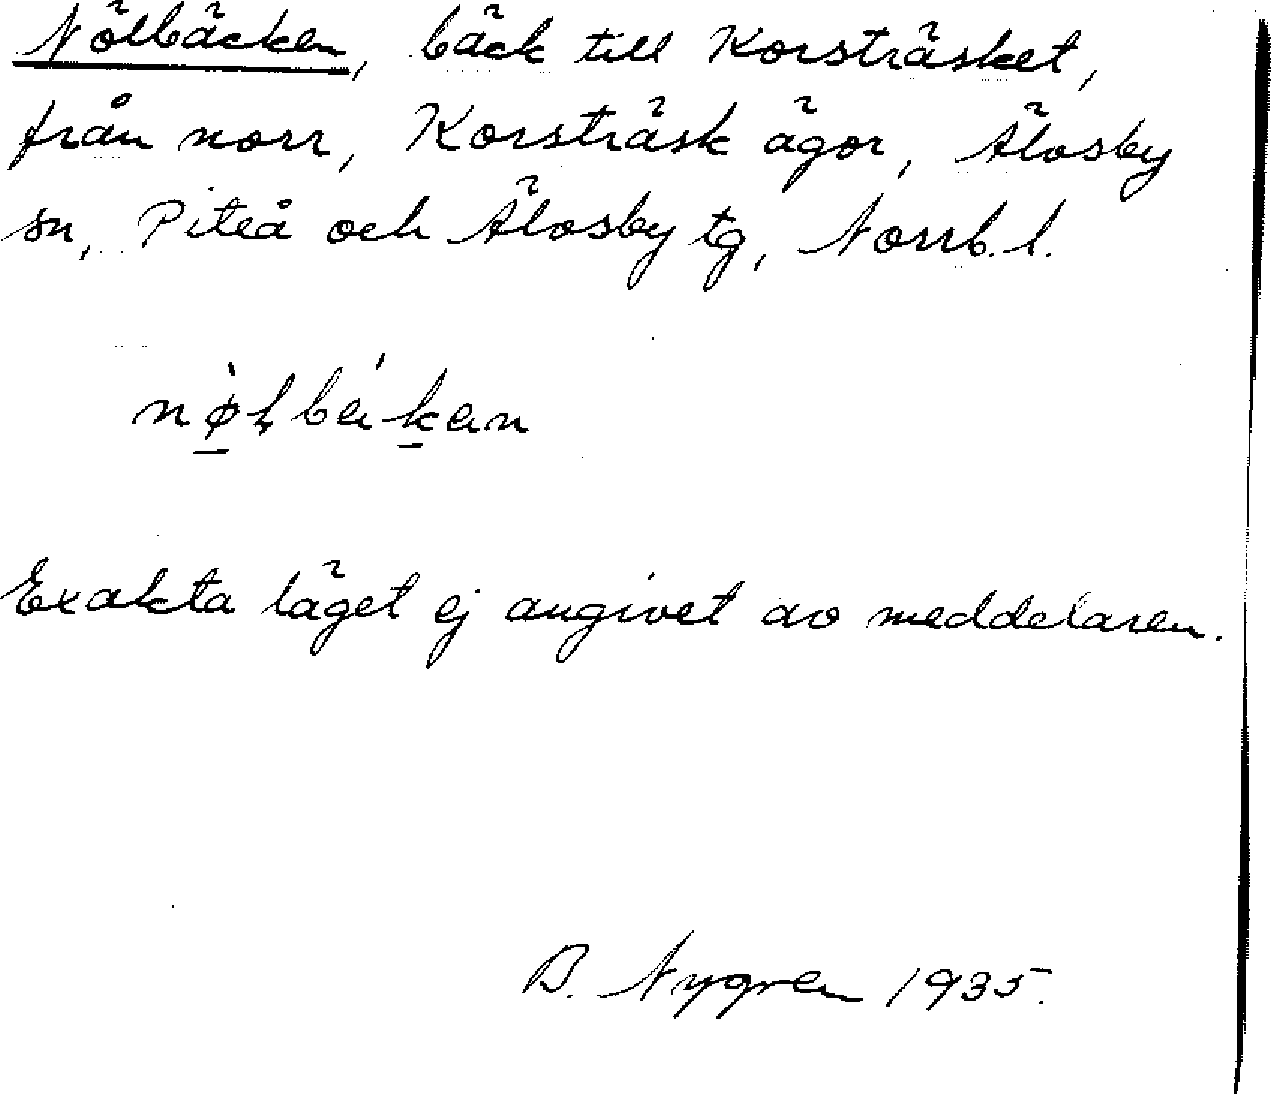 Nölbäcken, bäck till Korsträsket,
från norr, Korsträsk ägor, Älvsby
sn, Piteå och Älvsby tg, Norrb. l.
Exakta läget ej angivet av meddelaren.
B. Nygren 1935.